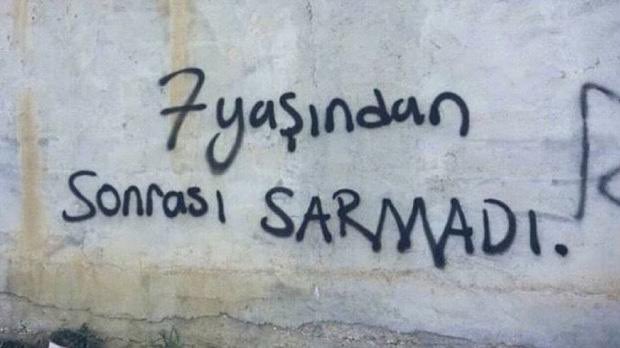 7 yaşından
sonrası SARMADI.